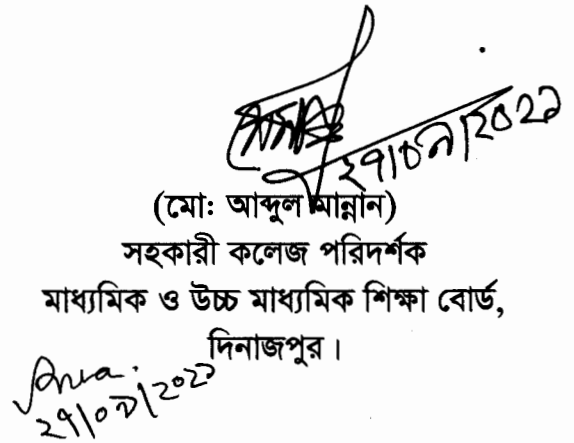 ২৭/০৯/২০২১
(মো: আব্দুল মান্নান)
সহকারী কলেজ পরিদর্শক
মাধ্যমিক ও উচ্চ মাধ্যমিক শিক্ষা বোর্ড,
দিনাজপুর।
২৭/০৯/২০২১